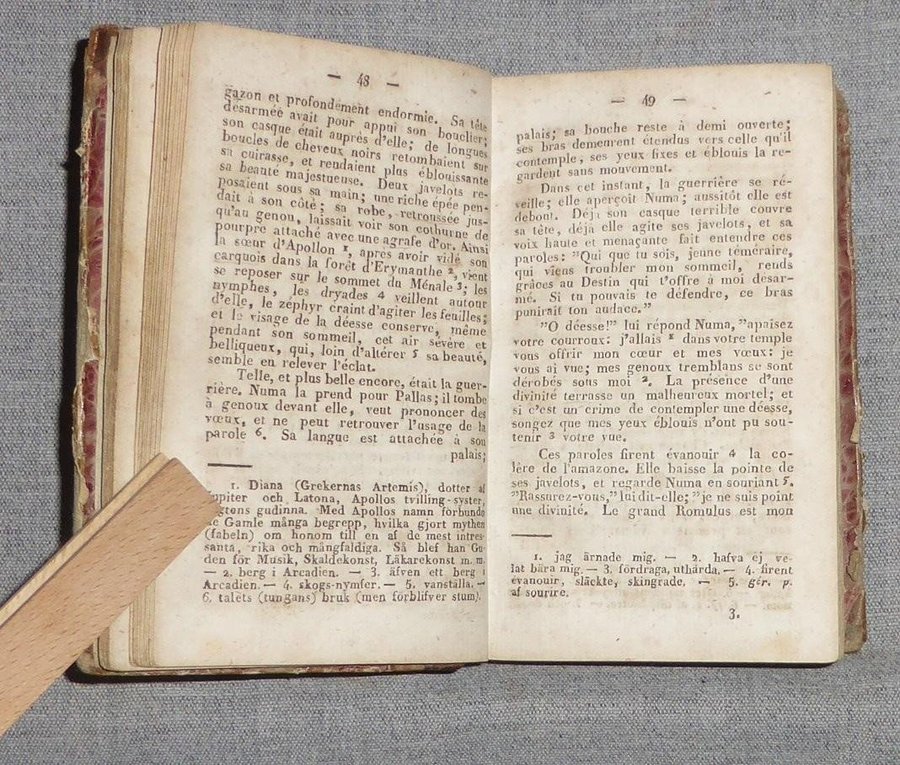 — 48 —
gazon et profondément endormie. Sa tête
désarmée avait pour appui son bouclier;
son casque était auprès d'elle; de longues
boucles de cheveux noirs retombaient sur
sa cuirasse, et rendaient plus éblouissante
sa beauté majestueuse. Deux javelots re-
posaient sous sa main; une riche épée pen-
dait à son côté; sa robe, retroussée jus-
qu'au genou, laissait voir son cothurne de
pourpre attaché avec une agrafe d'or. Ainsi
la sœur d'Apollon 1, après avoir vidé son
carquois dans la forêt d'Erymanthe 2, vient
se reposer sur le sommet du Ménale 3; les
nymphes, les dryades 4 veillent autour
d'elle, le zéphyr craint d'agiter les feuilles;
et le visage de la déesse conserve, même
pendant son sommeil, cet air sévère et
belliqueux, qui, loin d'altérer 5 sa beauté,
semble en relever l'éclat.
Telle, et plus belle encore, était la guer-
rière. Numa la prend pour Pallas; il tombe
à genoux devant elle, veut prononcer des
vœux, et ne peut retrouver l'usage de la
parole 6. Sa langue est attachée à son
palais;
1. Diana (Grekernas Artemis), dotter af
Jupiter och Latona, Apollos tvilling-syster,
gudinna. Med Apollos namn förbundo
de Gamle många begrepp, hvilka gjort mythen
(fabeln) om honom till en af de mest intres-
santa, rika och mångfaldiga. Så blef han Gu-
den för Musik, Skaldekonst, Läkarekonst m. m.
— 2. berg i Arcadien. — 3. äfven ett berg i
Arcadien — 4. skogs-nymfer. — 5. vanställa. —
6. talets (tungans) bruk (men förblifver stum).
— 49 —
palais; sa bouche reste à demi ouverte;
ses bras demeurent étendus vers celle qu'il
contemple, ses yeux fixes et éblouis la re-
gardent sans mouvement.
Dans cet instant, la guerrière se ré-
veille; elle aperçoit Numa; aussitôt elle est
debout. Déjà son casque terrible couvre
sa tête, déjà elle agite ses javelots, et sa
voix haute et menaçante fait entendre ces
paroles: ”Qui que tu sois, jeune téméraire,
qui viens troubler mon sommeil, rends
grâces au Destin qui t'offre à moi desar-
mé. Si tu pouvais te défendre, ce bras
punirait ton audace.”
”O déesse!” lui répond Numa, ”apaisez
votre courroux: j'allais 1 dans votre temple
vous offrir mon cœur et mes vœux: je
vous ai vue; mes genoux tremblans se sont
dérobés sous moi 2. La présence d'une
divinité terrasse un malheureux mortel; et
si c'est un crime de contempler une déesse,
songez que mes yeux éblouis n'ont pu sou-
tenir 3 votre vue.
Ces paroles firent évanouir 4 la co-
lère de l'amazone. Elle baisse la pointe de
ses javelots, et regarde Numa en souriant 5.
”Rassurez-vous,” lui dit-elle; ”je ne suis point
une divinité. Le grand Romulus est mon
1. jag ärnade mig. — 2. hafva ej ve-
lat bära mig. — 3. fördraga, uthärda. — 4. firent
évanouir, släckte, skingrade. — 5. gér. p.
af sourire.
3.